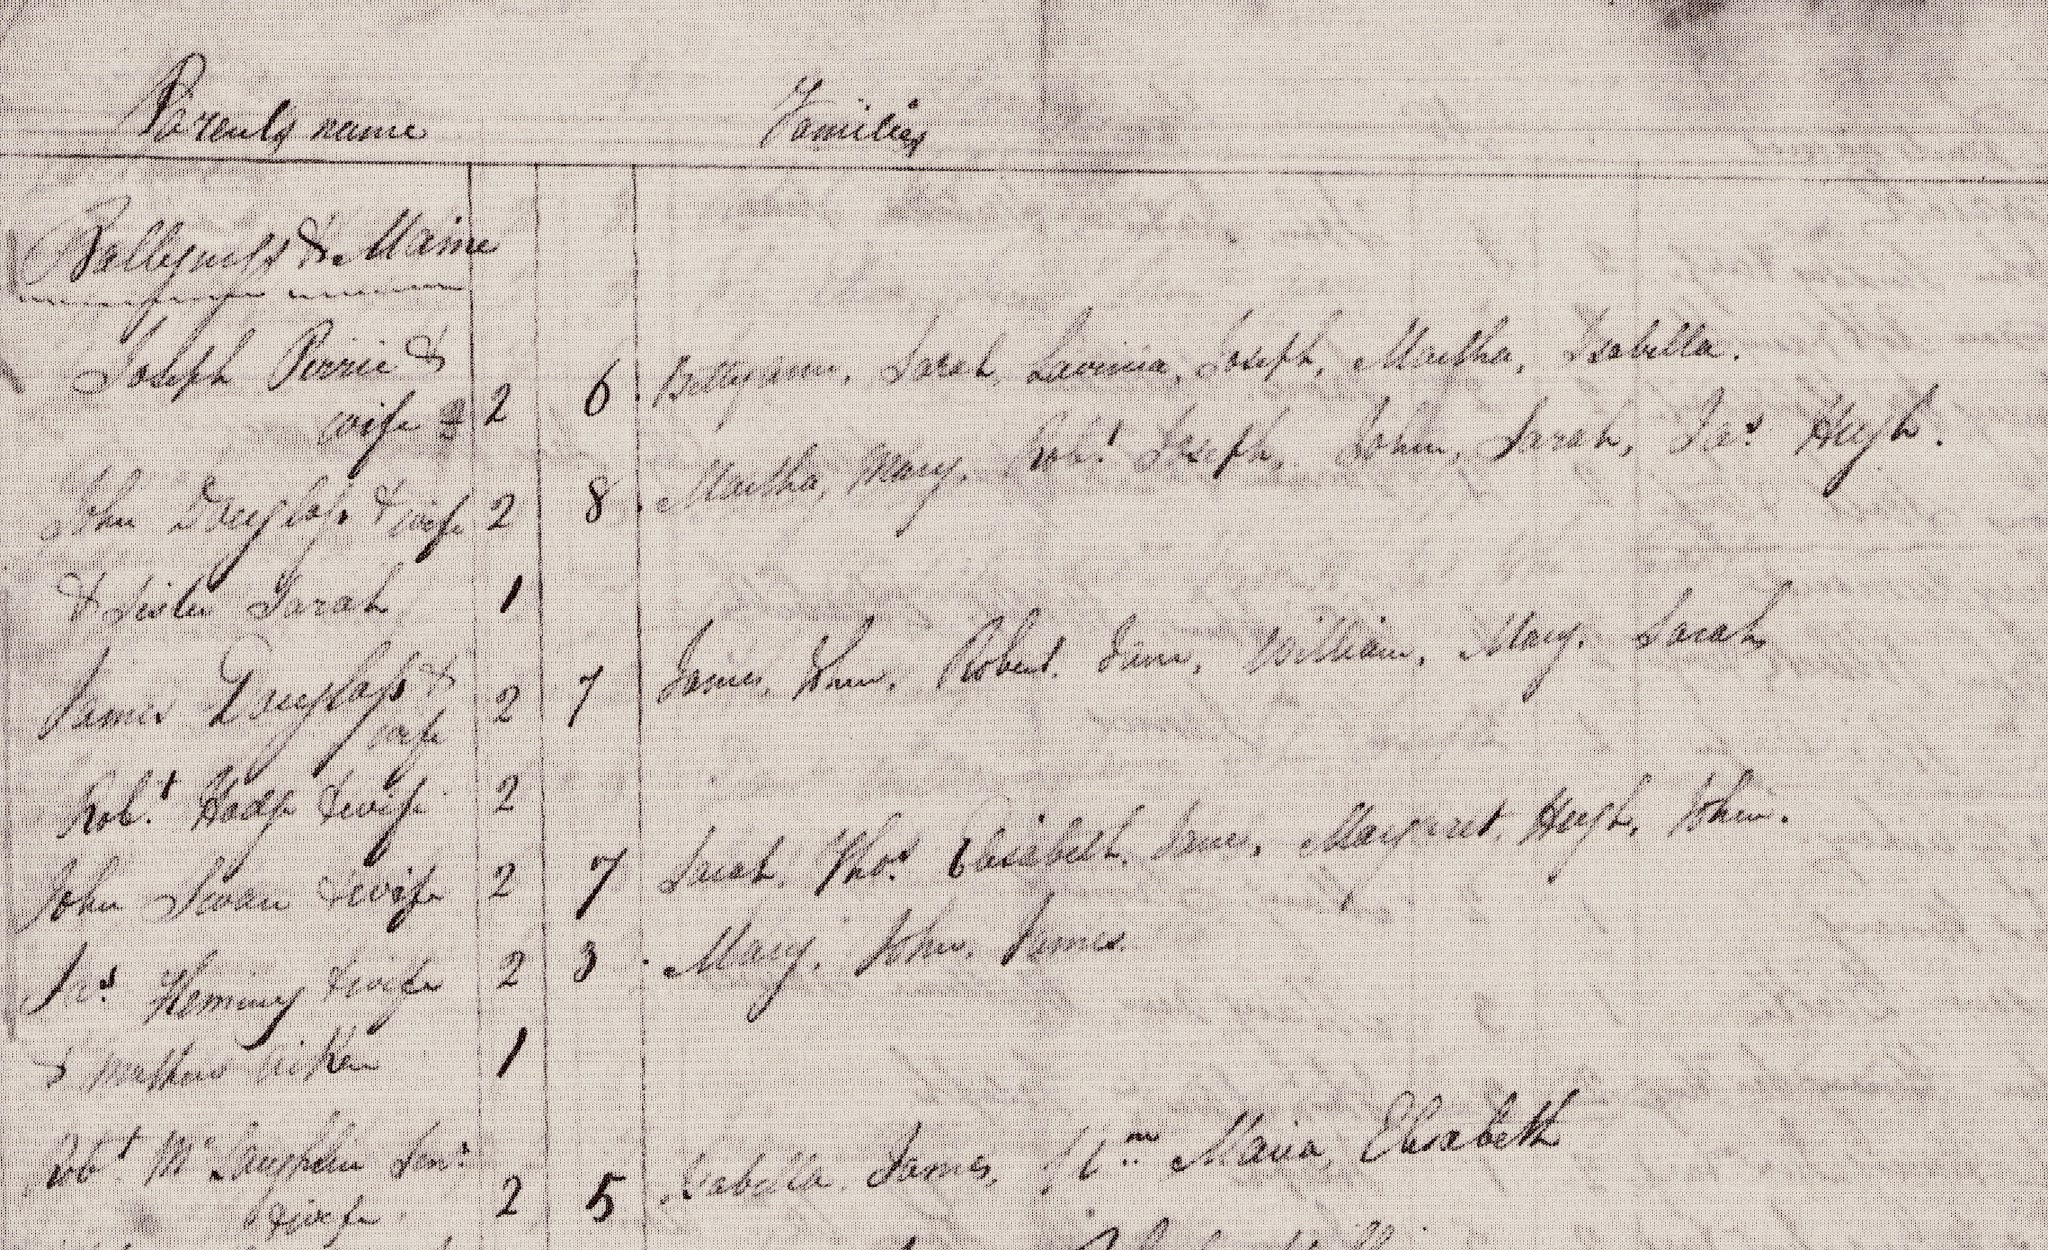 Parents name Families
Ballynass & Maine
Joseph Pirrie & 6 Bettyann, Sarah, Lavinia, Joseph, Martha, Isabella.
wife 2
John Douglass & wife 2 8 Martha, Mary, Robt. Joseph, John, Sarah, Jas. Hugh.
& Sister Sarah 1
James Douglass & 2 7 James, John, Robert, Jane, William, Mary, Sarah
wife
Robt. Hodge & wife 2
John Swan & wife 2 7 Sarah, Thos. Elisabeth, James, Margaret, Hugh, John.
Jas. Fleming & wife 2 3 Mary, John, James.
& Aiken 1
Robt. McLaughlin Senr. Isabella, James, Wm. Maria, Elisabeth
& wife 2 5